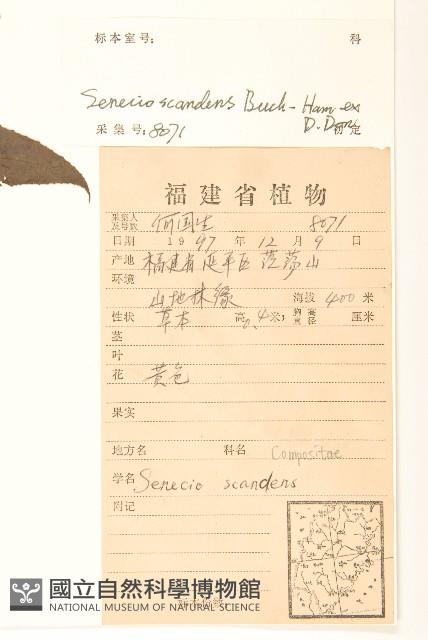 标本室号: 科
Senecio scandens Buch-Ham ex
采集号: 8071 D. Don 初定
福建省植物
采集人及号数 何国生 8071
日期 1997 年 12 月 9 日
产地 福建省延平区茫荡山
环境
山地林缘 海拔 400 米
性状 草本 高 0.4 米; 胸高直径 厘米
茎
叶
花 黄色
果实
地方名 科名 Compositae
学名 Senecio scandens
附记
國立自然科學博物館
NATIONAL MUSEUM OF NATURAL SCIENCE